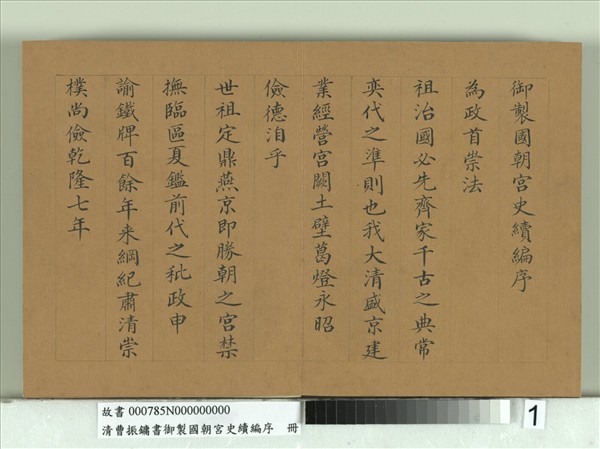 御製國朝宮史續編序
為政首崇法
祖治國必先齊家千古之典常
奕代之準則也我大清盛京建
業經營宮闕土壁葛燈永昭
儉德洎乎
世祖定鼎燕京即勝朝之宮禁
撫臨區夏鑑前代之秕政申
諭鐵牌百餘年来綱紀肅清崇
樸尚儉乾隆七年
故書 000785N000000000
清曹振鏞書御製國朝宮史續編序 冊
1